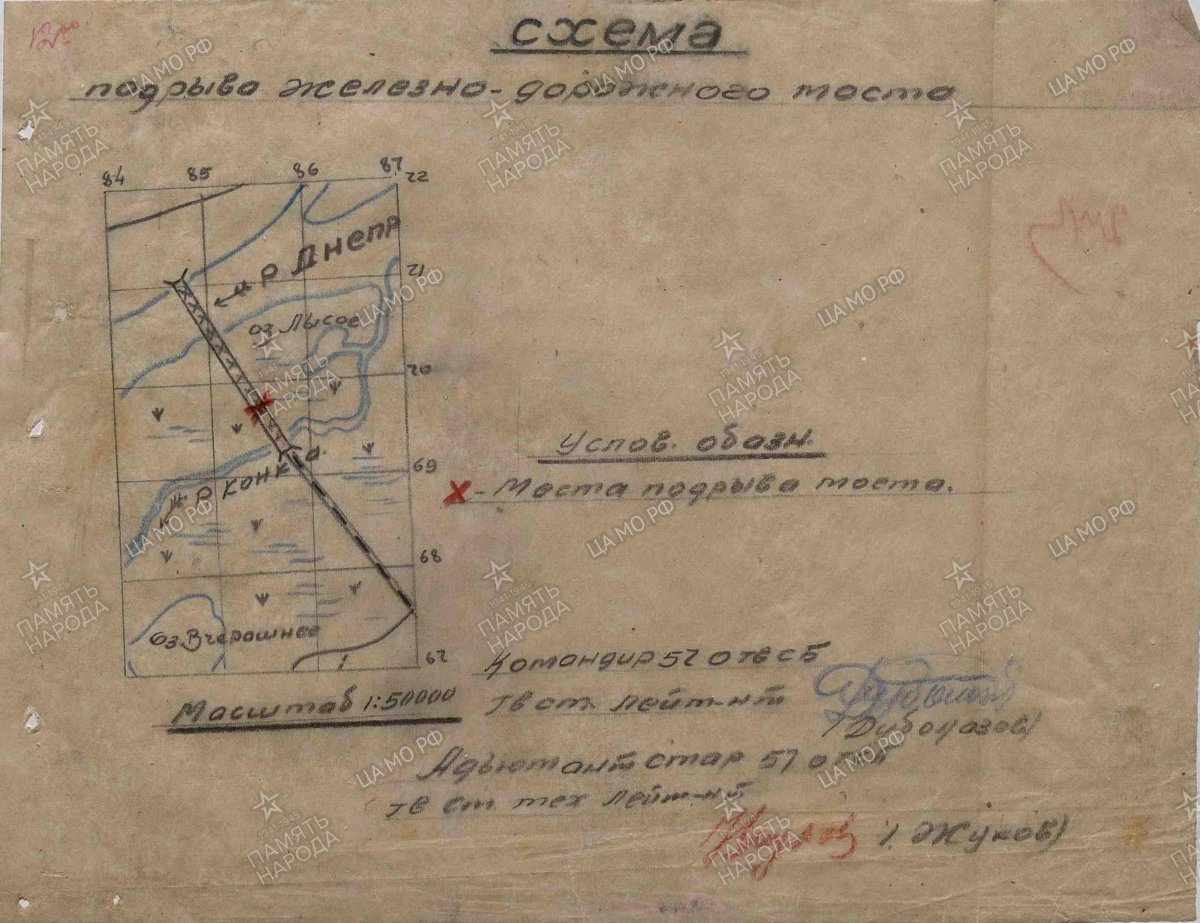 схема
подрыва железно-дорожного моста
84 85 86 87
22
р Днепр
21
оз. Лысое
20
69
р Конка.
68
оз. Вчерашнее
67
Масштаб 1:50000
Услов. обозн.
х - Места подрыва моста.
Командир 57
ст. лейт-нт
Адъютант стар 57
ст тех лейт-нт
(Жуков)
ЦАМО РФ
ПАМЯТЬ НАРОДА
1941-1945